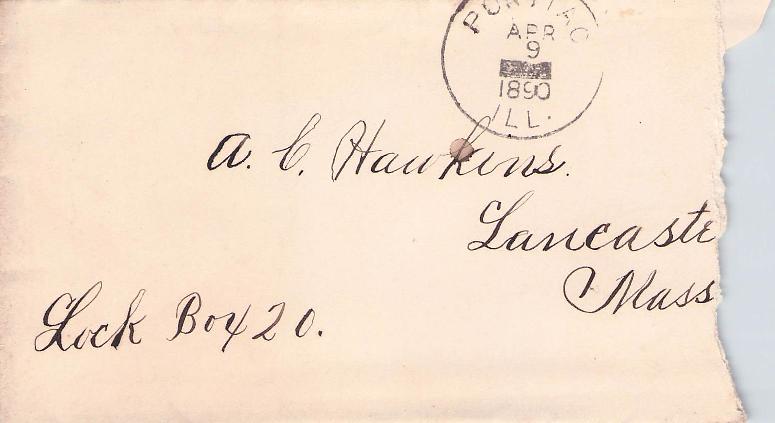 PONTIAC
APR
9
1890
ILL.
A. C. Hawkins.
Lancaste
Mass
Lock Box 20.